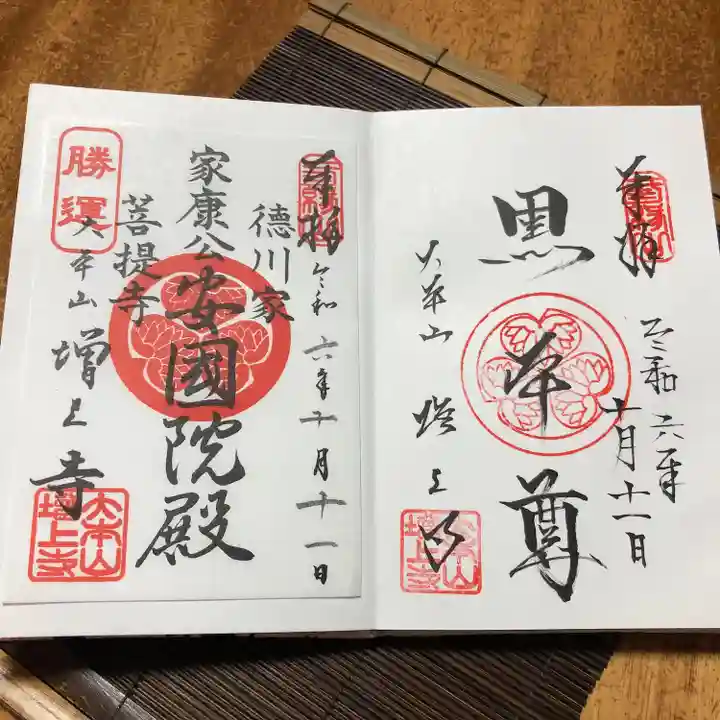 奉拝
令和六年十月十一日
黒本尊
大本山
増上寺
大本山
増上寺
奉拝
令和六年十月十一日
徳川家
家康公
安國院殿
菩提寺
大本山
増上寺
勝運
大本山
増上寺